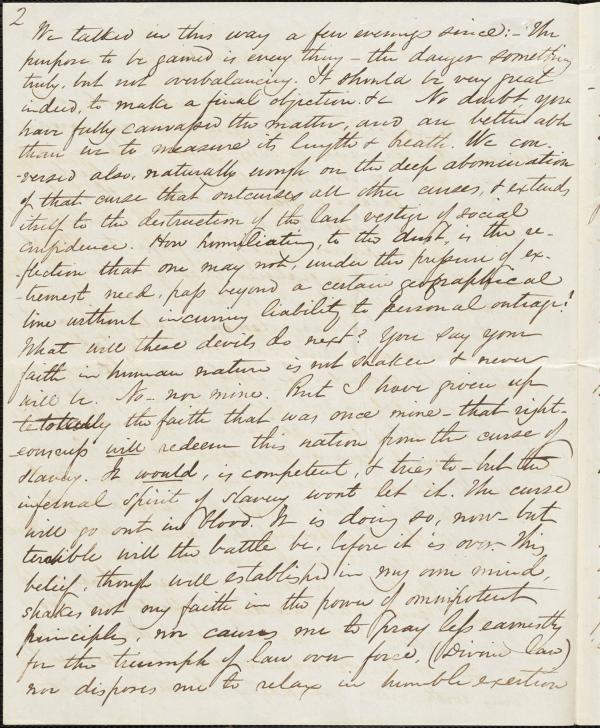 2
We talked in this way a few evenings since:- The
purpose to be gained is every thing - the danger something
truly, but not overbalancing. It should be very great
indeed, to make a final objection. &c No doubt, you
have fully canvassed the matter, and are better able
than we to measure its length & breath. We con-
-versed also, naturally enough on the deep abomination
of that curse that outcurses all other curses, & extends
itself to the destruction of the last vestige of social
confidence. How humiliating, to the dust, is the re-
flection that one may not, under the pressure of ex-
tremest need, pass beyond a certain geographical
line without incurring liability to personal outrage!
What will these devils do next? You say your
faith in human nature is not shaken & never
will be. No - nor mine. But I have given up
totally the faith that was once mine - that right-
-eousness will redeem this nation from the curse of
slavery. It would, is competent, & tries to - but the
infernal spirit of slavery wont let it. The curse
will go out in blood. It is doing so, now - but
terrible will the battle be, before it is over. This
belief, though well established in my own mind,
shakes not my faith in the power of omnipotent
principles, nor causes me to pray less earnestly
for the triumph of law over force, (Divine law)
nor disposes me to relax in humble exertion